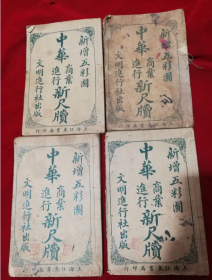 新增五彩圖
中華
商業
進行
新尺牘
文明進行社出版
新增五彩圖
中華
商業
進行
新尺牘
文明進行社出版
新增五彩圖
中華
商業
進行
新尺牘
文明進行社出版
新增五彩圖
中華
商業
進行
新尺牘
文明進行社出版